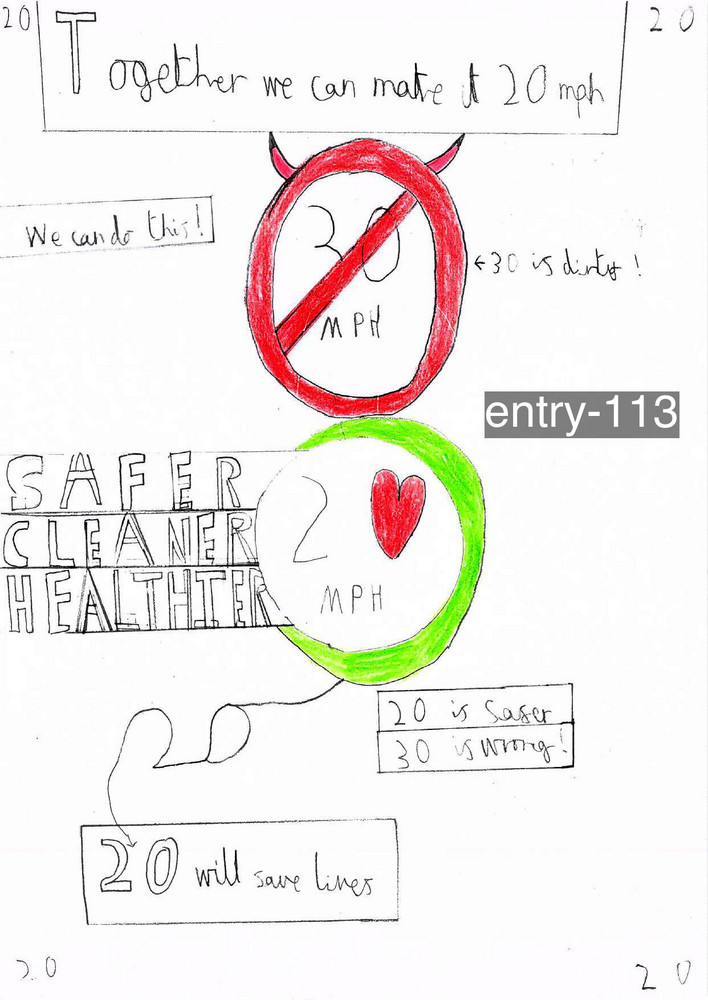 20
20
Together we can make it 20 mph
We can do this!
30
MPH
←30 is dirty!
entry-113
SAFER
CLEANER
HEALTHIER
2
MPH
20 is safer
30 is wrong!
20 will save lives
20
20